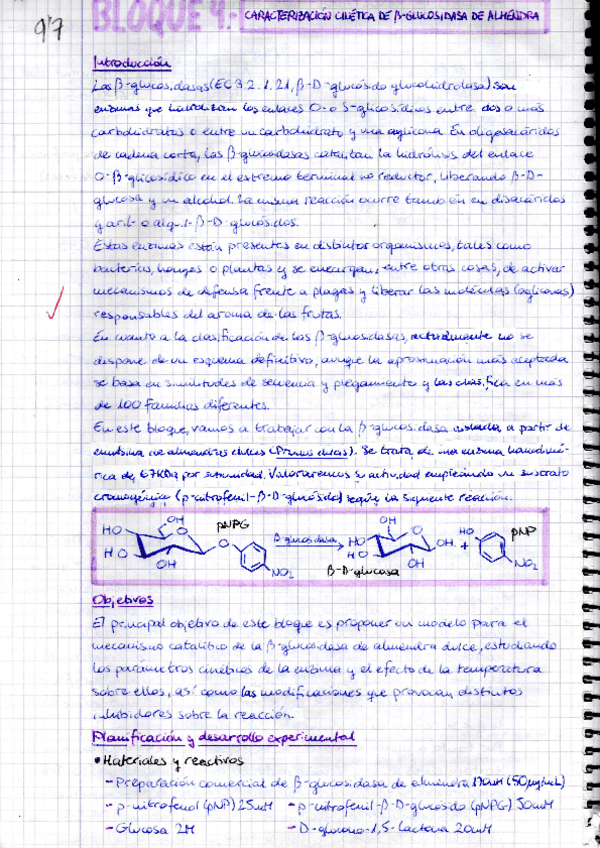 9'7
BLOQUE 4.- CARACTERIZACIÓN CINÉTICA DE β-GLUCOSIDASA DE ALMENDRA
Introducción
Las β-glucosidasas (EC 3.2.1.21, β-D-glucósido glucohidrolasa) son
enzimas que hidrolizan los enlaces O- o S-glicosídicos entre dos o más
carbohidratos o entre un carbohidrato y una aglicona. En oligosacáridos
de cadena corta, las β-glucosidasas catalizan la hidrólisis del enlace
O-β-glicosídico en el extremo terminal no reductor, liberando β-D-
glucosa y un alcohol. La misma reacción ocurre también en disacáridos
y aril- o alquil-β-D-glucósidos.
Estas enzimas están presentes en distintos organismos, tales como
bacterias, hongos o plantas y se encargan, entre otras cosas, de activar
mecanismos de defensa frente a plagas y liberar las moléculas (agliconas)
responsables del aroma de las frutas.
En cuanto a la clasificación de las β-glucosidasas, actualmente no se
dispone de un esquema definitivo, aunque la aproximación más aceptada
se basa en similitudes de secuencia y plegamiento y las clasifica en más
de 100 familias diferentes.
En este bloque, vamos a trabajar con la β-glucosidasa aislada a partir de
emulsina de almendras dulces (Prunus dulcis). Se trata de una enzima homodimé-
rica de 67KDa por subunidad. Valoraremos su actividad empleando un sustrato
cromogénico (p-nitrofenil-β-D-glucósido) según la siguiente reacción:
HO HO OH OH O O pNPG NO₂ β-glucosidasa HO HO OH OH O OH β-D-glucosa + HO pNP NO₂
Objetivos
El principal objetivo de este bloque es proponer un modelo para el
mecanismo catalítico de la β-glucosidasa de almendra dulce, estudiando
los parámetros cinéticos de la enzima y el efecto de la temperatura
sobre ellos, así como las modificaciones que provocan distintos
inhibidores sobre la reacción.
Planificación y desarrollo experimental
• Materiales y reactivos
- Preparación comercial de β-glucosidasa de almendra (50µg/mL)
- p-nitrofenol (pNP) 25mM - p-nitrofenil-β-D-glucósido (pNPG) 50mM
- Glucosa 2M - D-glucono-1,5-lactona 20mM